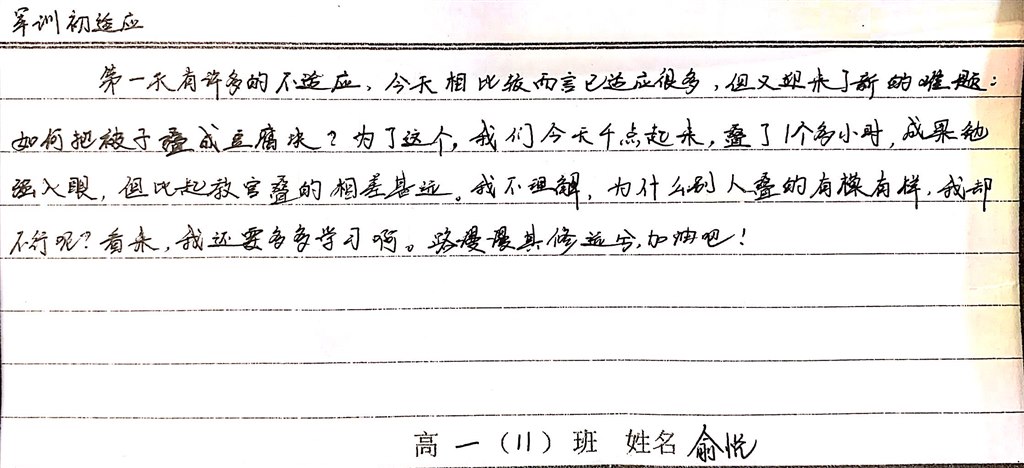 军训初适应
第一天有许多的不适应,今天相比较而言已适应很多,但又迎来了新的难题:
如何把被子叠成豆腐块?为了这个,我们今天千点起来,叠了1个多小时,成果勉
强入眼,但比起教官叠的相差甚远。我不理解,为什么别人叠的有模有样,我却
不行呢?看来,我还要多多学习啊。路漫漫其修远兮,加油吧!
高一(11)班 姓名俞悦